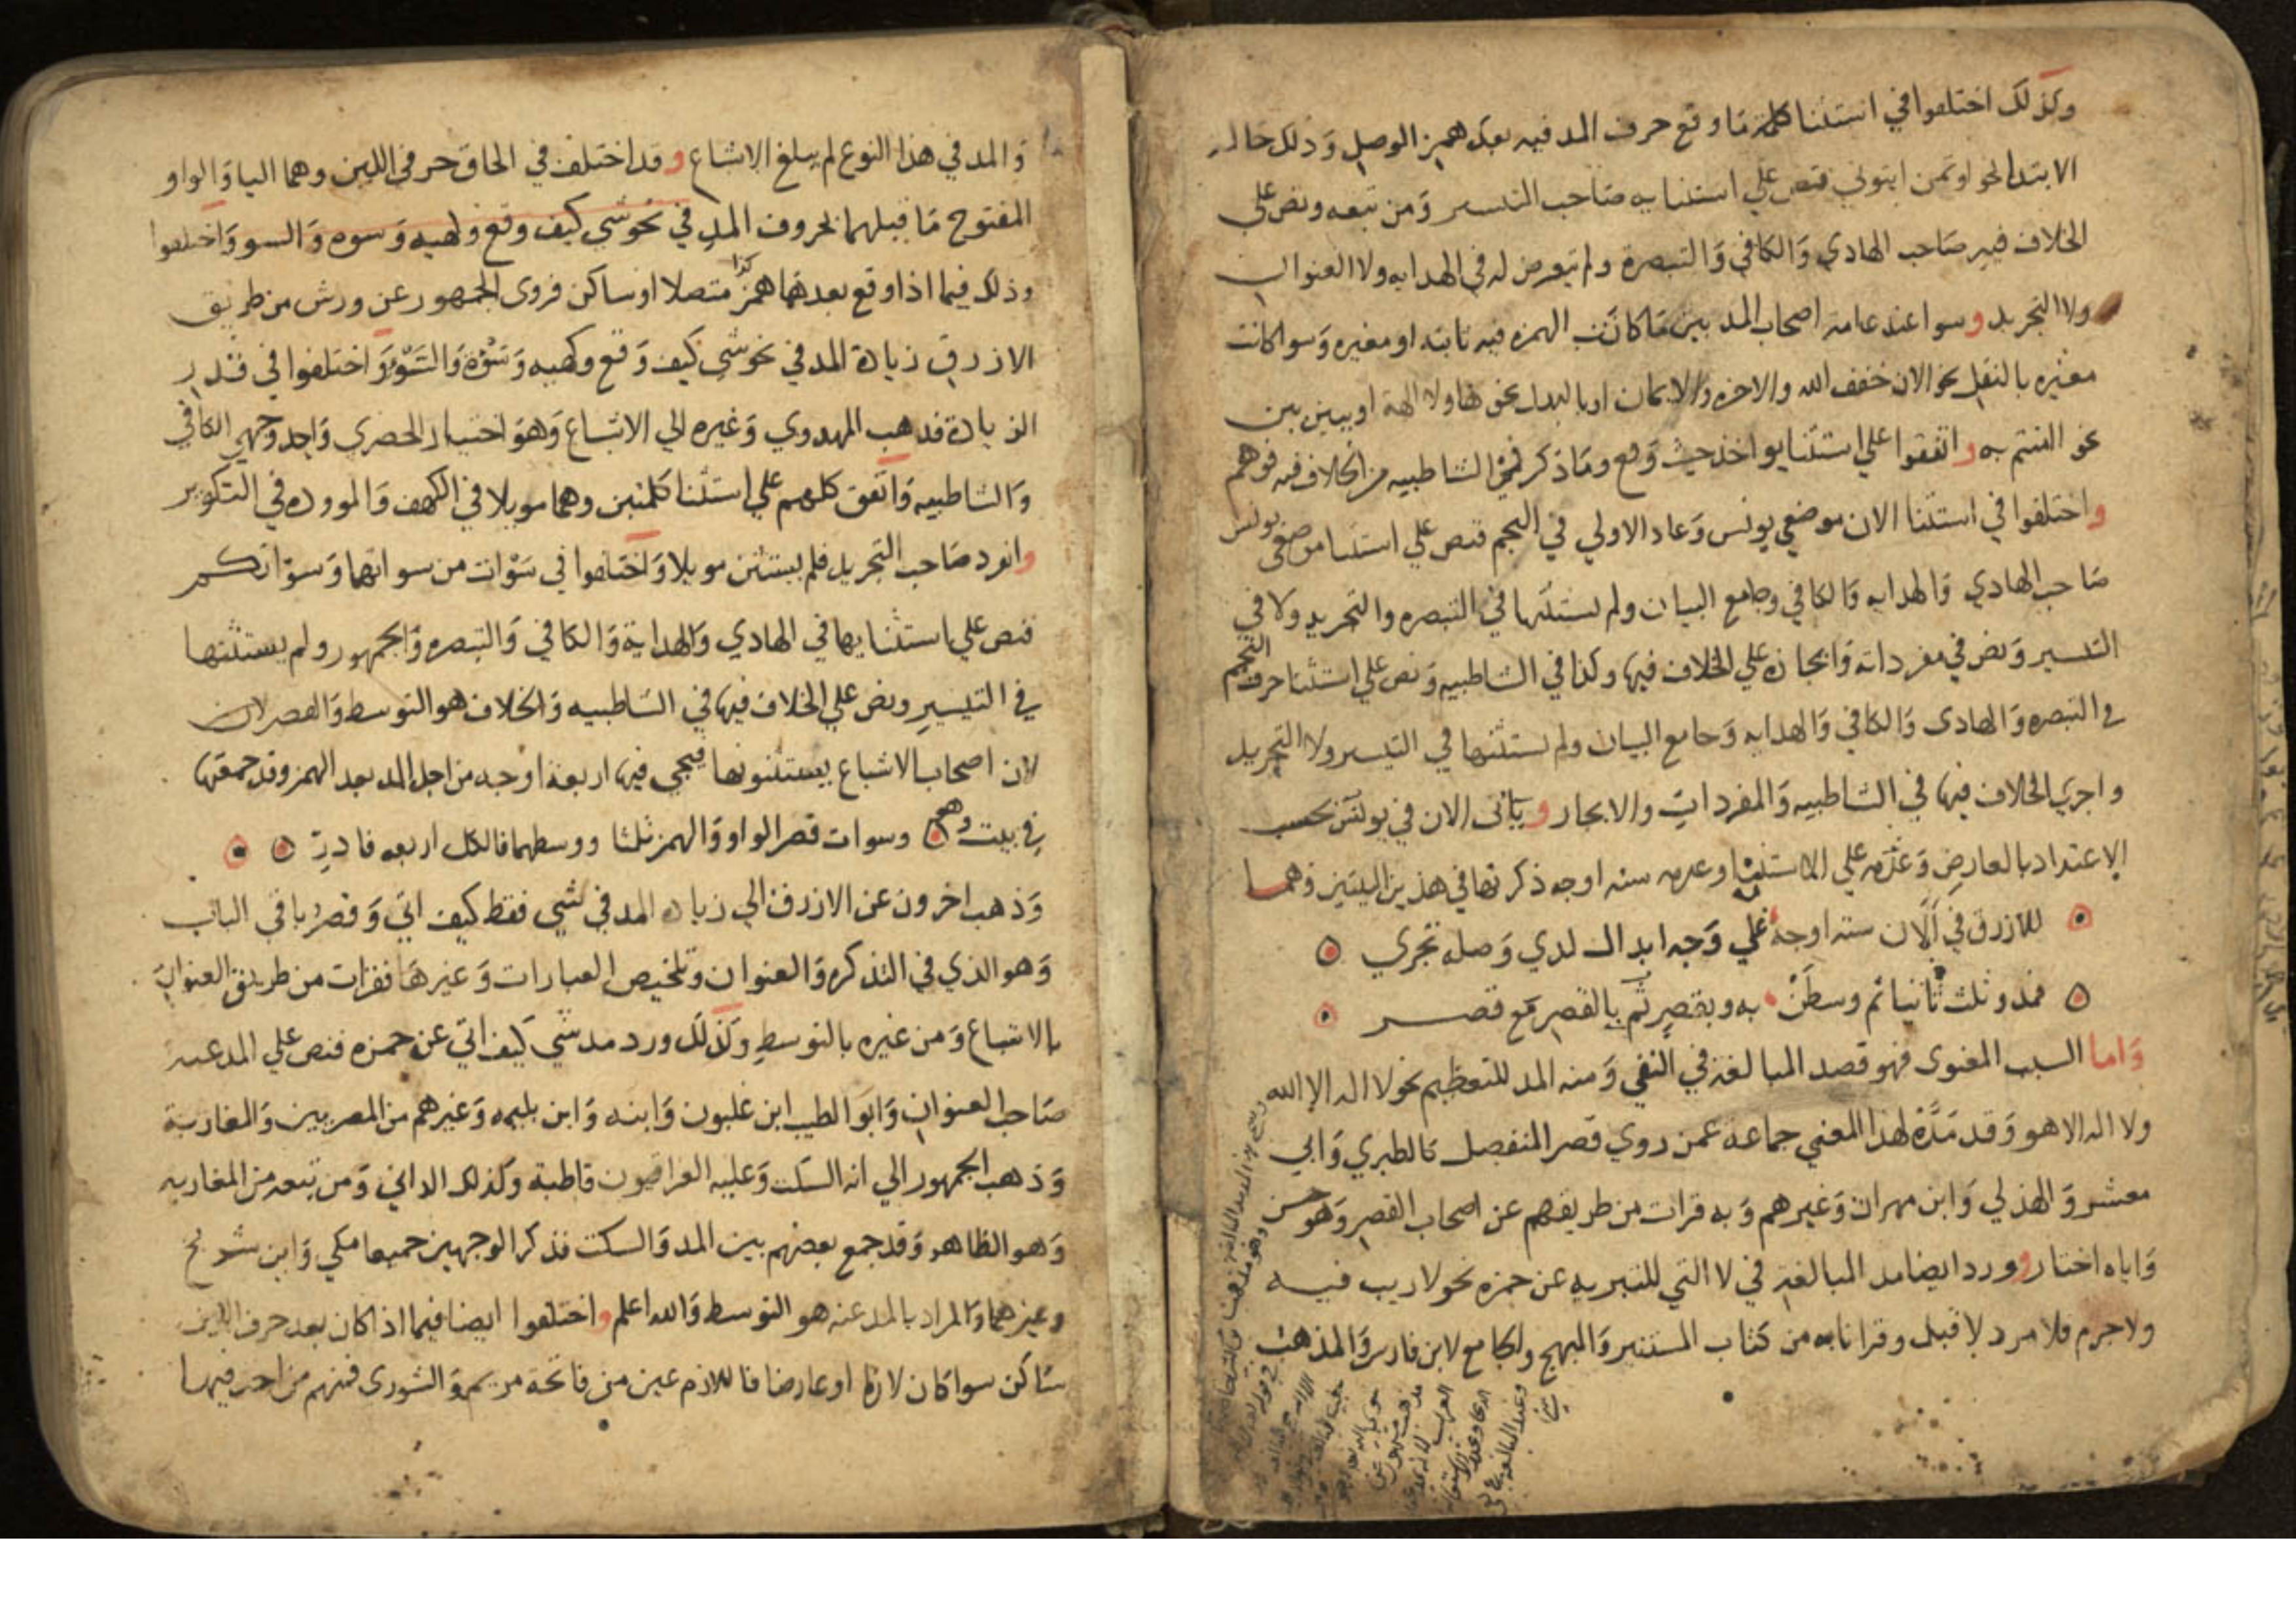 وكذلك اختلفوا في استثنا كلمة ما وقع حرف المد فيه بعد همز الوصل وذلك حاله
الابتدا نحو اوتمن ايتوني فنص علي استثنايه صاحب التيسير ومن تبعه ونص علي
الخلاف فيه صاحب الهادي والكافي والتبصرة ولم يتعرض له في الهدايه ولا العنوان
ولا التجريد وسوا عند عامة اصحاب المد بين ما كانت الهمزه فيه ثابته او مغيره وسوا كانت
مغيره بالنقل نحو الان خفف الله والاخره والايمان او بالبدل نحو هاولا الهة او ببين بين
نحو اامنتم به واتفقوا علي استثنا يواخذ حيث وقع وما ذكر في الشاطبيه من الخلاف فيه فوهم
واختلفوا في استثنا الان موضعي يونس وعاد الاولي في النجم فنص علي استثنا موضعي يونس
صاحب الهادي والهدايه والكافي وجامع البيان ولم يستثنها في التبصره والتجريد ولا في
التيسير ونص في مفرداته وايجازه علي الخلاف فيها وكذا في الشاطبيه ونص علي استثنا حرف النجم
في التبصره والهادى والكافي والهدايه وجامع البيان ولم يستثنها في التيسير ولا التجريد
واجري الخلاف فيها في الشاطبيه والمفردات والايجاز وياتى الان في يونس بحسب
الاعتداد بالعارض وعدمه علي الاستثنا وعدمه سته اوجه ذكرتها في هذين البيتين وهما
للازرق في آلان سته اوجه علي وجه ابدال لدي وصله تجري
فمد وثلث ثانيا ثم وسطن به وبقصر ثم بالقصر مع قصر
واما السبب المعنوى فهو قصد المبالغة في النفي ومنه المد للتعظيم نحو لا اله الا الله
ولا اله الا هو وقد مده لهذا المعني جماعة عمن روي قصر المنفصل كالطبري وابي
معشر والهذلي وابن مهران وغيرهم وبه قرات من طريقهم عن اصحاب القصر وهو حسن
واياه اختار وورد ايضا مد المبالغة في لا التي للتبريه عن حمزه نحو لا ريب فيه
ولا جرم فلا مرد لا قبل وقرانا به من كتاب المستنير والمبهج والجامع لابن فارس والمذهب
والمد في هذا النوع لم يبلغ الاشباع وقد اختلف في الحاق حرفي اللين وهما اليا والواو
المفتوح ما قبلهما بحروف المد في نحو شي كيف وقع وهيه وسوه والسو واختلفوا
وذلك فيما اذا وقع بعدهما همز متصلا او ساكن فروى الجمهور عن ورش من طريق
الازرق زيادة المد في نحو شي كيف وقع وكهيه وسوة والسو واختلفوا في قدر
الزيادة فذهب المهدوي وغيره الي الاشباع وهو اختيار الحصري واحد وجهي الكافي
والشاطبيه واتفق كلهم علي استثنا كلمتين وهما مويلا في الكهف والموودة في التكوير
وانفرد صاحب التجريد فلم يستثن مويلا واختلفوا في سوات من سواتهما وسواتكم
فنص علي استثنايها في الهادي والهداية والكافي والتبصره والجمهور ولم يستثنها
في التيسير ونص علي الخلاف فيها في الشاطبيه والخلاف هو التوسط والقصر لان
لان اصحاب الاشباع يستثنونها فيجي فيها اربعة اوجه من اجل المد بعد الهمز وقد جمعتها
في بيت وهو وسوات قصر الواو والهمز ثلثا ووسطهما فالكل اربعه فادر
وذهب اخرون عن الازرق الي زياده المد في شي فقط كيف اتي وقصر باقي الباب
وهو الذي في التذكره والعنوان وتلخيص العبارات وغيرها فقرات من طريق العنوان
بالاشباع ومن غيره بالتوسط وكذلك ورد مد شي كيف اتي عن حمزه فنص علي المد عنه
صاحب العنوان وابو الطيب ابن غلبون وابنه وابن بليمه وغيرهم من المصريين والمغاربة
وذهب الجمهور الي انه السكت وعليه العراقيون قاطبة وكذلك الداني ومن تبعه من المغاربه
وهو الظاهر وقد جمع بعضهم بين المد والسكت فذكر الوجهين جميعا مكي وابن شريح
وغيرهما والمراد بالمد عنه هو التوسط والله اعلم واختلفوا ايضا فيما اذا كان بعد حرف اللين
ساكن سوا كان لازما او عارضا فاللازم عين من فاتحة مريم والشورى فمنهم من اجرى فيها